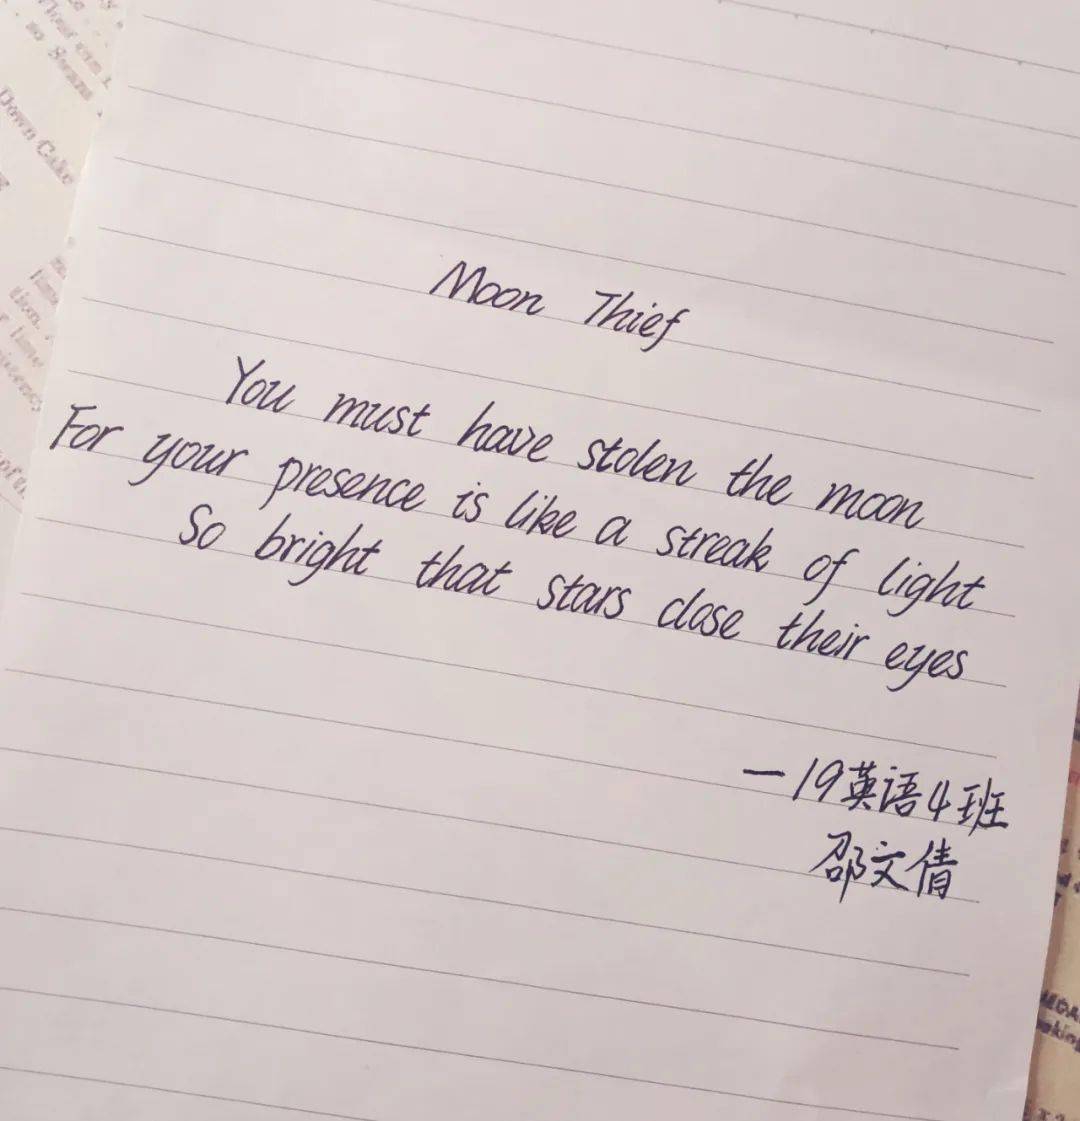 Moon Thief
You must have stolen the moon
For your presence is like a streak of light
So bright that stars close their eyes
—19英语4班
邵文倩
Down Cake